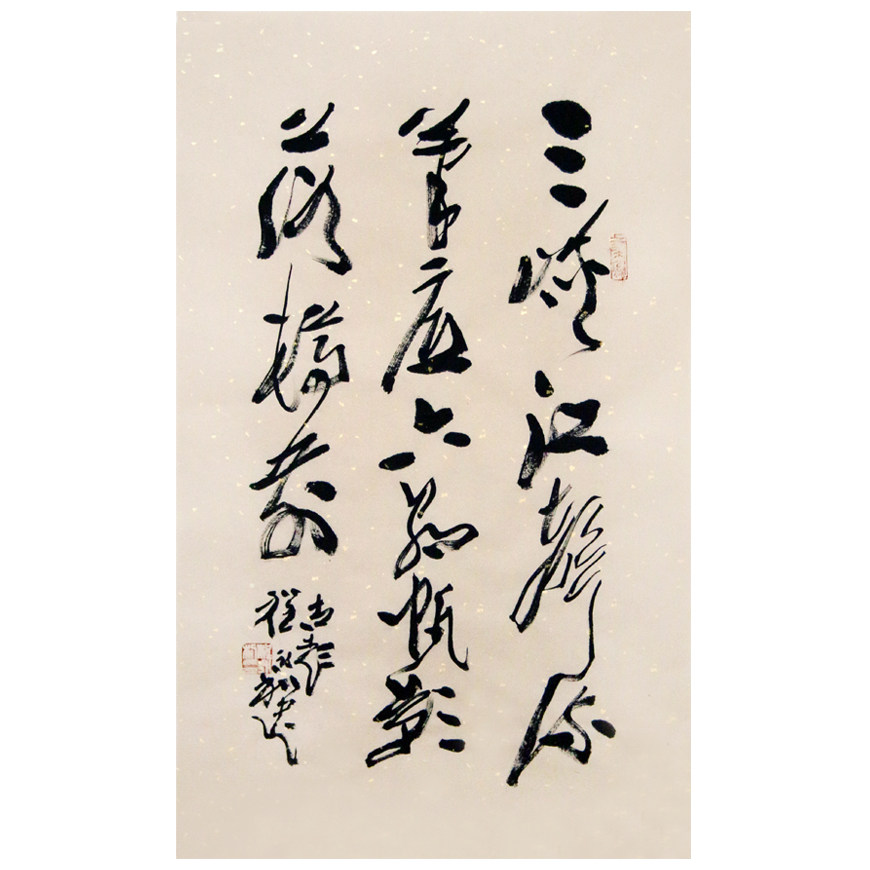 三峽江聲流
筆底六朝帆影
落樽前